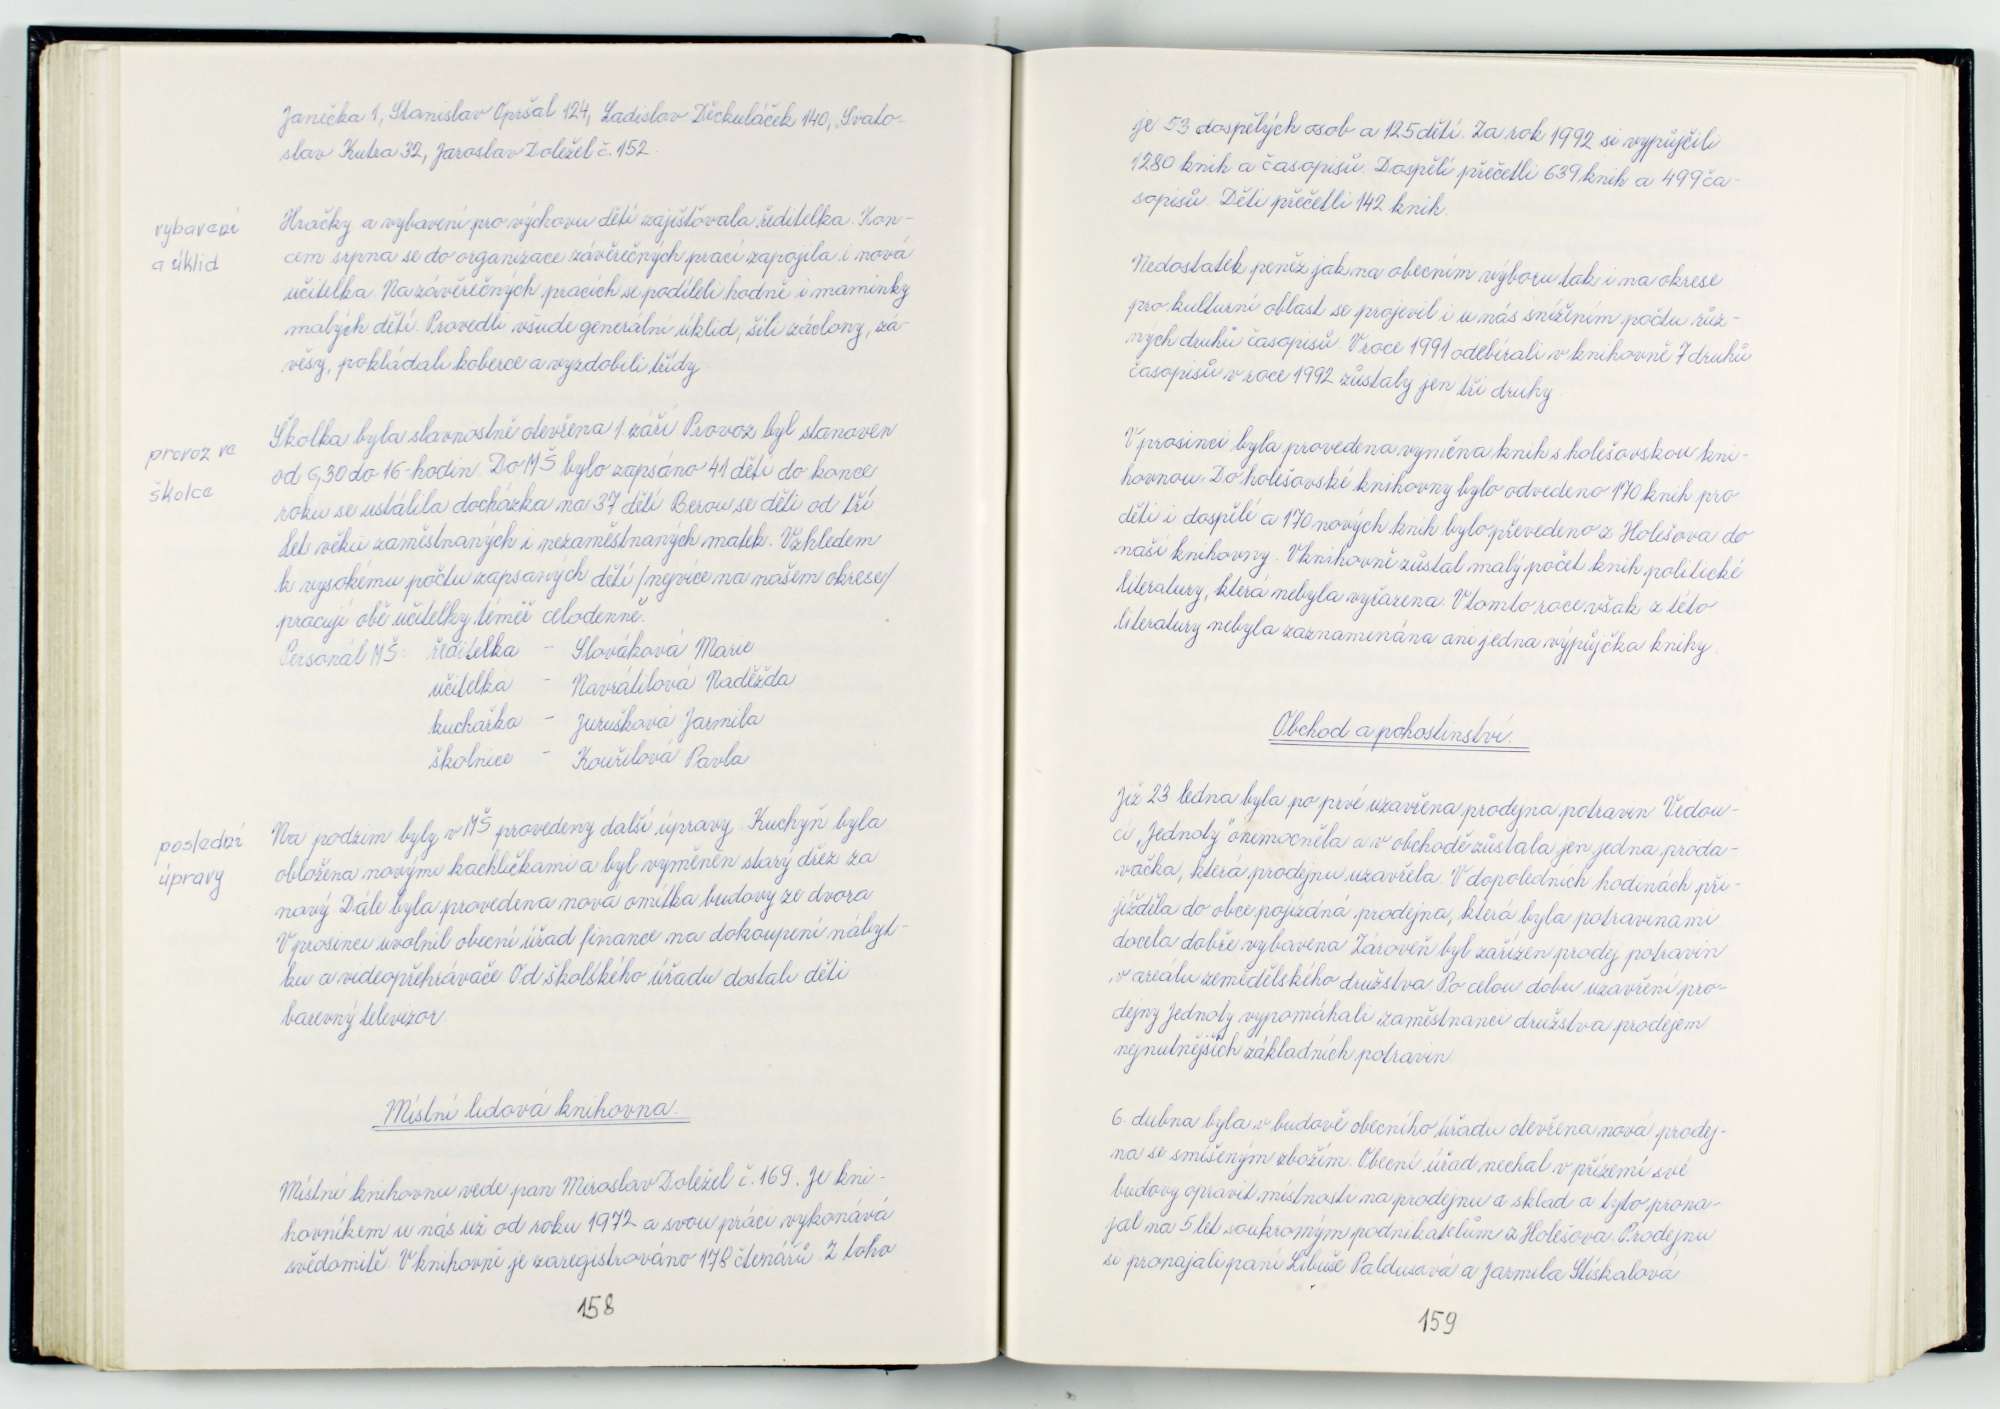 Janečka 1, Stanislav Opršal 124, Ladislav Děckuláček 140, Svato-
slav Kutra 32, Jaroslav Doležel č. 152.
vybavení
a úklid
Hračky a vybavení pro výchovu dětí zajišťovala ředitelka. Kon-
cem srpna se do organizace závěrečných prací zapojila i nová
učitelka. Na závěrečných pracích se podíleli hodně i maminky
malých dětí. Provedli všude generální úklid, šili záclony, zá-
věsy, pokládali koberce a vyzdobili třídy
provoz ve
školce
Školka byla slavnostně otevřena 1. září Provoz byl stanoven
od 6,30 do 16-hodin. Do MŠ bylo zapsáno 41 dětí do konce
roku se ustálila docházka na 37 dětí Berou se děti od tří
let věku zaměstnaných i nezaměstnaných matek. Vzhledem
k vysokému počtu zapsaných dětí /nejvíce na našem okrese/
pracují obě učitelky téměř celodenně.
Personál MŠ: ředitelka - Slováková Marie
učitelka - Navrátilová Naděžda
kuchařka - Jurušková Jarmila
školnice - Kouřilová Pavla
poslední
úpravy
Na podzim byly v MŠ provedeny další úpravy. Kuchyň byla
obložena novými kachličkami a byl vyměněn starý dřez za
nový Dále byla provedena nová omítka budovy ze dvora
V prosinci uvolnil obecní úřad finance na dokoupení nábyt-
ku a videopřehrávače Od školského úřadu dostali děti
barevný televizor
Místní lidová knihovna.
Místní knihovnu vede pan Miroslav Doležel č. 169. Je kni-
hovníkem u nás už od roku 1972 a svou práci vykonává
svědomitě. V knihovně je zaregistrováno 178 čtenářů. Z toho
158
je 53 dospělých osob a 125 dětí. Za rok 1992 si vypůjčili
1280 knih a časopisů. Dospělí přečetli 639 knih a 499 ča-
sopisů. Děti přečetli 142 knih.
Nedostatek peněz jak na obecním výboru tak i na okrese
pro kulturní oblast se projevil i u nás snížením počtu růz-
ných druhů časopisů. V roce 1991 odebírali v knihovně 7 druhů
časopisů v roce 1992 zůstaly jen tři druhy
V prosinci byla provedena vyměna knih s holešovskou kni-
hovnou. Do holešovské knihovny bylo odvedeno 170 knih pro
děti i dospělé a 170 nových knih bylo převedeno z Holešova do
naší knihovny. V knihovně zůstal malý počet knih politické
literatury, která nebyla vyřazena. V tomto roce však z této
literatury nebyla zaznamenána ani jedna výpůjčka knihy.
Obchod a pohostinství.
Již 23 ledna byla po prvé uzavřena prodejna potravin Vedou-
cí „Jednoty“ onemocněla a v obchodě zůstala jen jedna proda-
vačka, která prodejnu uzavřela. V dopoledních hodinách při-
jížděla do obce pojízdná prodejna, která byla potravinami
docela dobře vybavena Zároveň byl zařízen prodej potravin
v areálu zemědělského družstva Po celou dobu uzavření pro-
dejny Jednoty vypomáhali zaměstnanci družstva prodejem
nejnutnějších základních potravin
6. dubna byla v budově obecního úřadu otevřena nová prodej-
na se smíšeným zbožím. Obecní úřad nechal v přízemí své
budovy opravit místnosti na prodejnu a sklad a tyto prona-
jal na 5 let soukromým podnikatelům z Holešova. Prodejnu
si pronajali paní Libuše Paldusová a Jarmila Stískalová
159